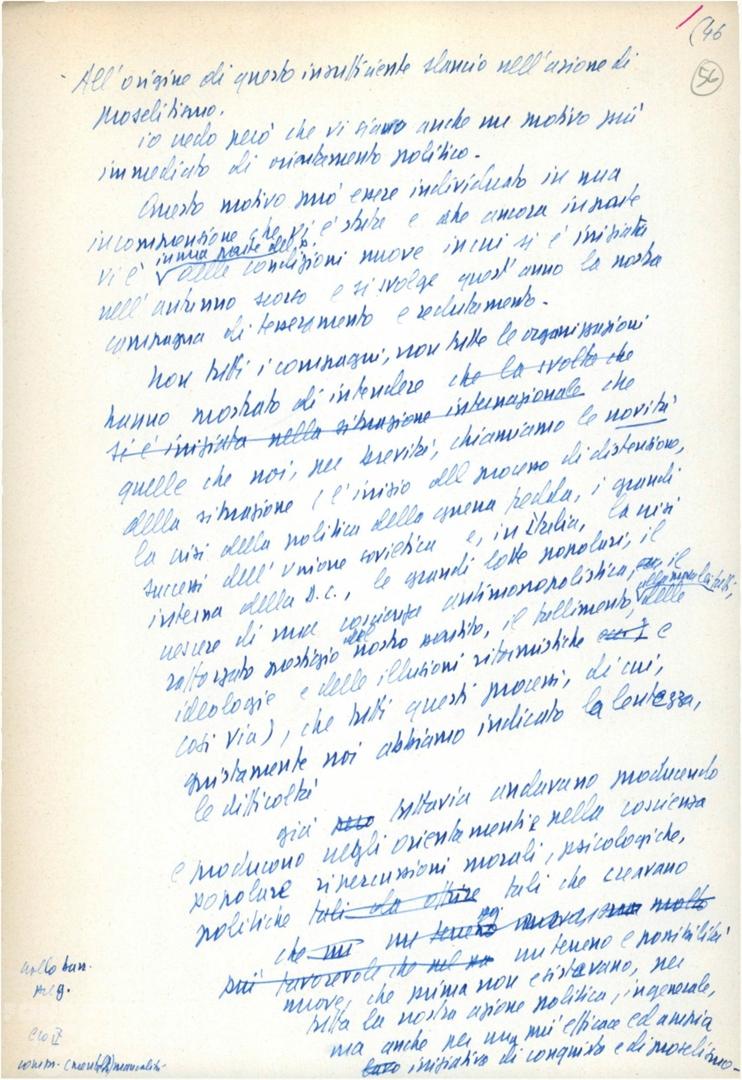 (46
56
All'origine di questo insufficiente slancio nell'azione di
proselitismo.
io vedo però che vi siano anche un motivo più
immediato di orientamento politico.
Questo motivo può essere individuato in una
incomprensione che vi è stata e che ancora in parte
vi è in una parte del p. delle condizioni nuove in cui si è iniziata
nell'autunno scorso e si svolge quest'anno la nostra
campagna di tesseramento e reclutamento.
Non tutti i compagni, non tutte le organizzazioni
hanno mostrato di intendere che la svolta che
si è iniziata nella situazione internazionale che
quelle che noi, per brevità, chiamiamo le novità
della situazione (l'inizio del processo di distensione,
la crisi della politica della guerra fredda, i grandi
successi dell'Unione sovietica e, in Italia, la crisi
interna della D.C., le grandi lotte popolari, il
nascere di una coscienza antimonopolistica, il
rafforzato prestigio del nostro partito, il fallimento, delle
ideologie e delle illusioni riformistiche e
così via), che tutti questi processi, di cui,
giustamente noi abbiamo indicato la lentezza,
le difficoltà
già tuttavia andavano producendo
e producono negli orientamenti e nella coscienza
popolare ripercussioni morali, psicologiche,
politiche tali da offrire tali che creavano
che un un terreno
più favorevole che nel un terreno e possibilità
nuove, che prima non esistevano, per
tutta la nostra azione politica, in generale,
ma anche per una più efficace ed ampia
iniziativa di conquista e di proselitismo.